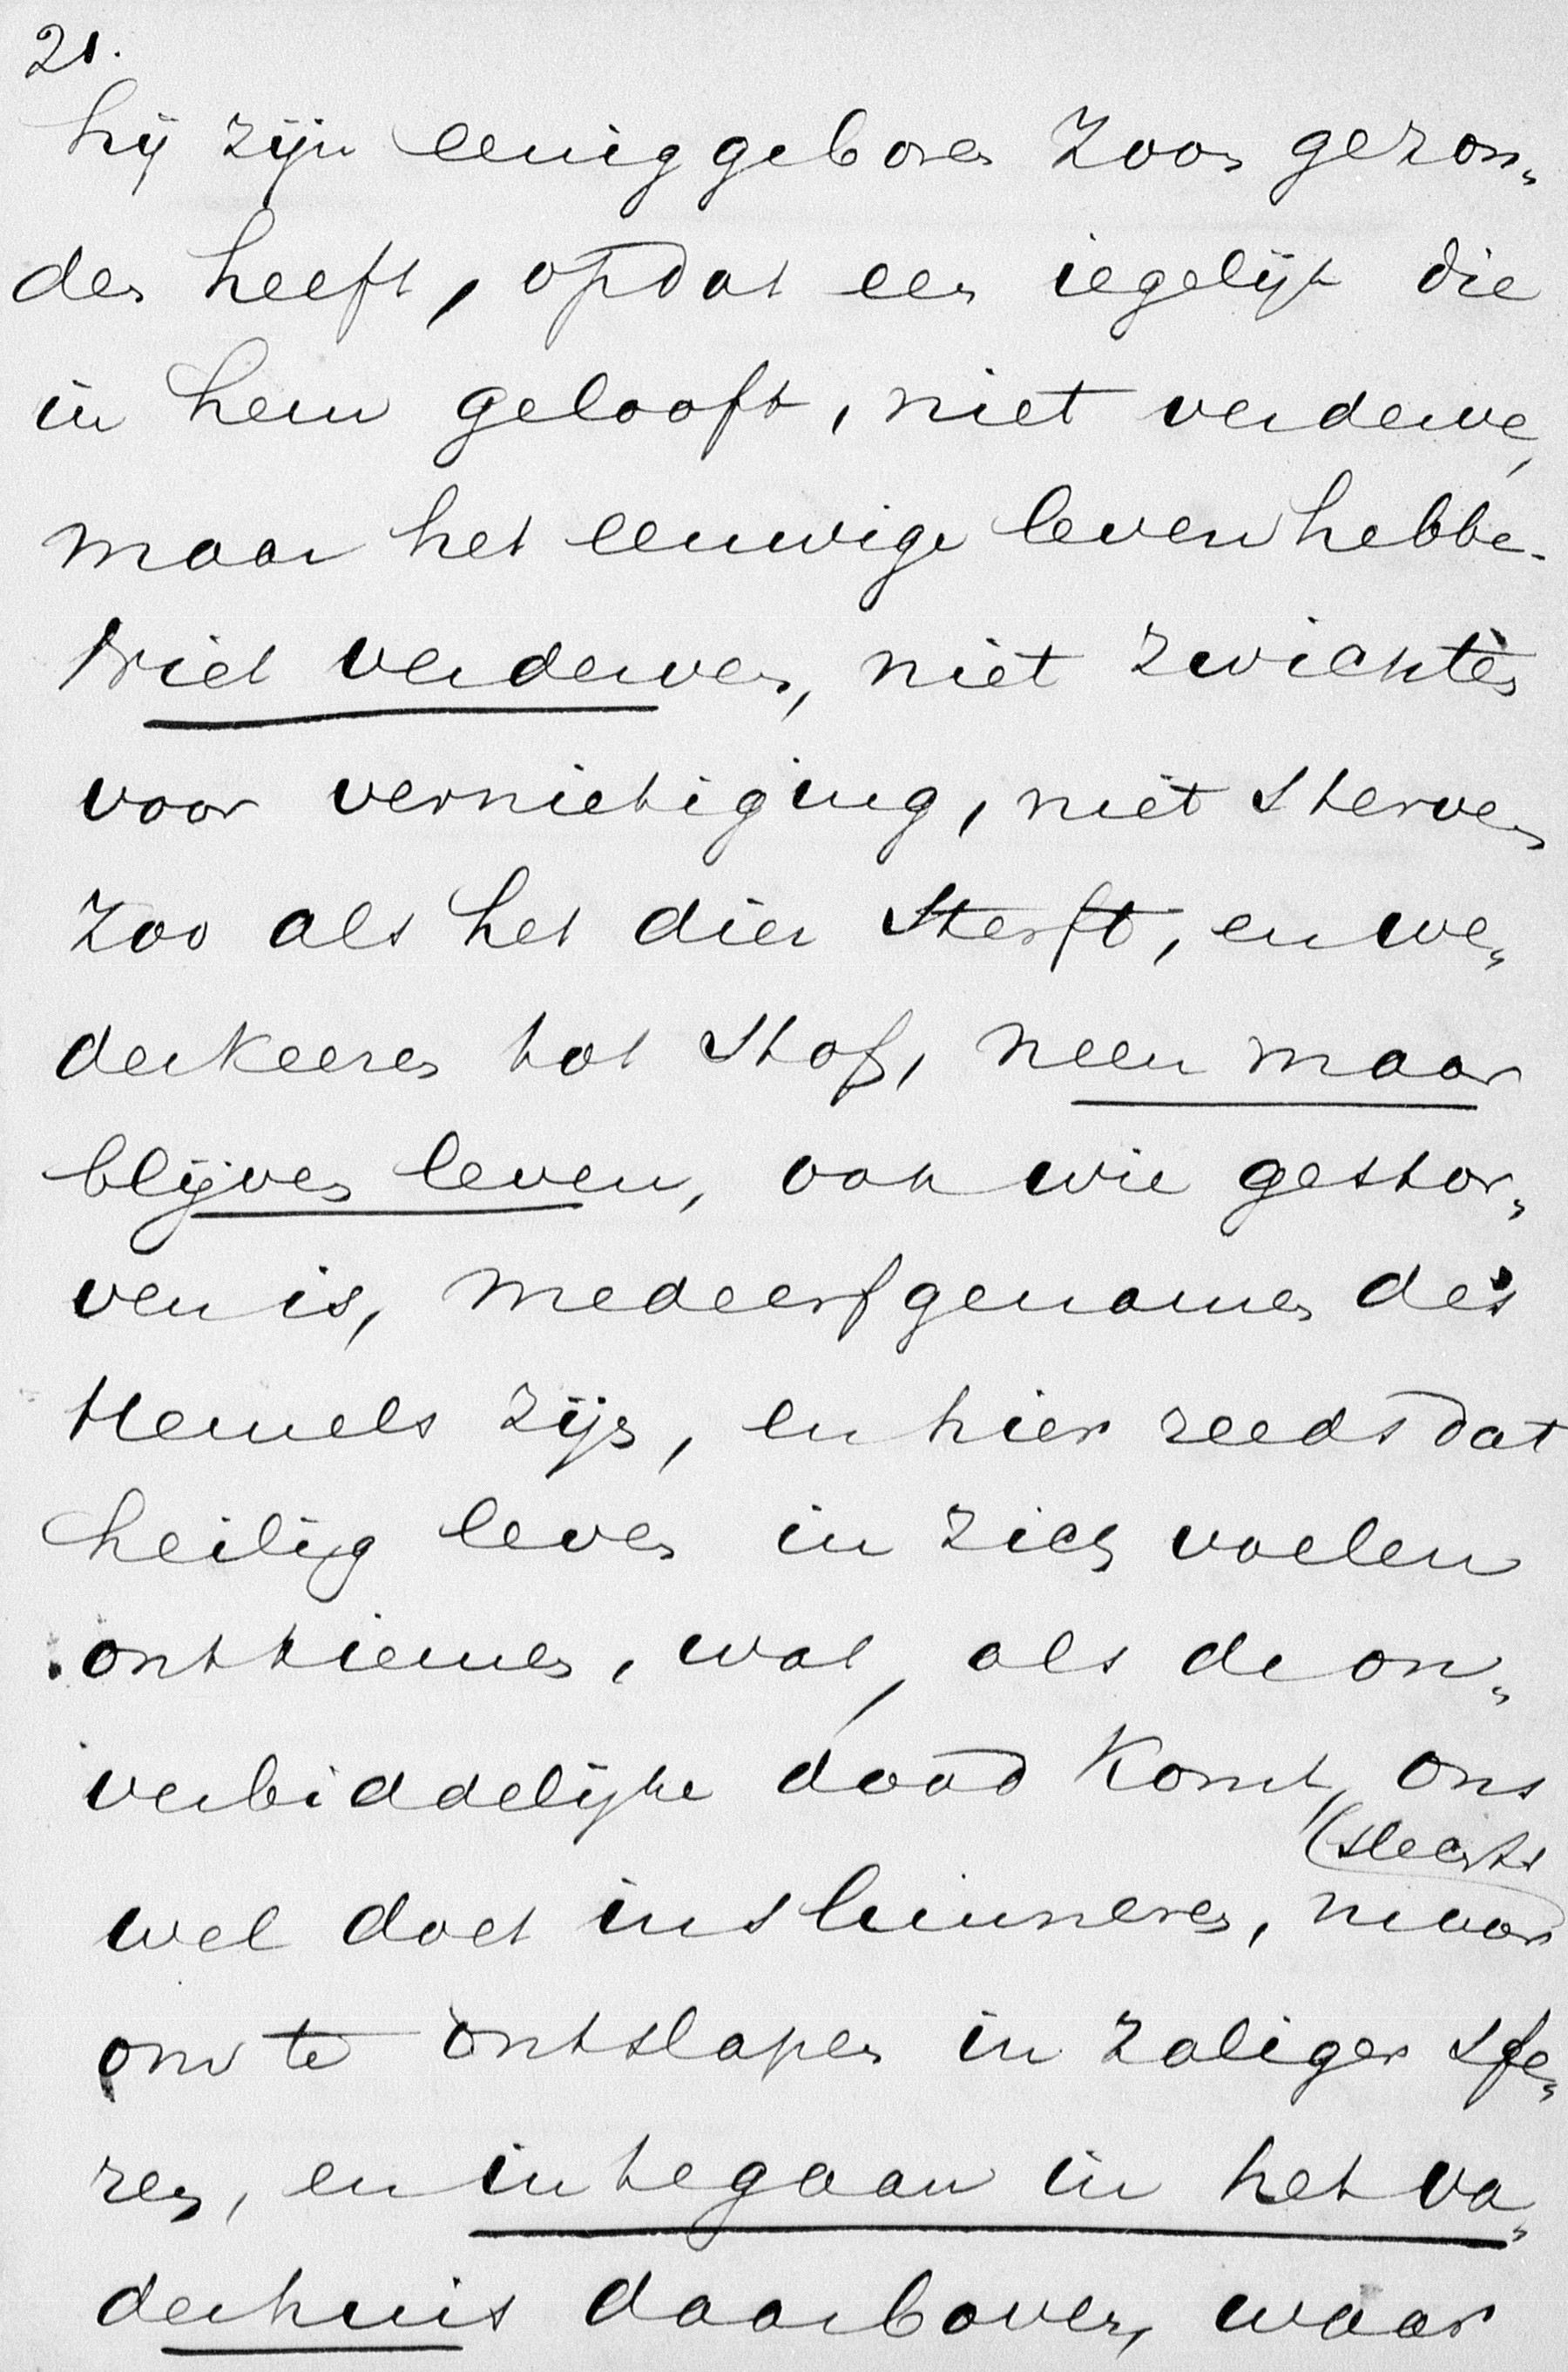 21.
hij zijn eeniggeboren Zoon gezon„
den heeft, opdat een iegelijk die
in hem gelooft, niet verderve,
maar het eeuwige leven hebbe.
Niet verderven, niet zwichten
voor vernietiging, niet sterven
zoo als het dier sterft, en we„
derkeeren tot stof, neen maar
blijven leven, ook wie gestor„
ven is, medeerfgenamen des
Hemels zijn, en hier reeds dat
heilig leven in zich voelen
ontkiemen, wat, als de on„
verbiddelijke dood komt, ons
(slechts
wel doet insluimeren, maar
om te ontslapen in zaliger sfe„
ren, en in te gaan in het va„
derhuis daarboven, waar